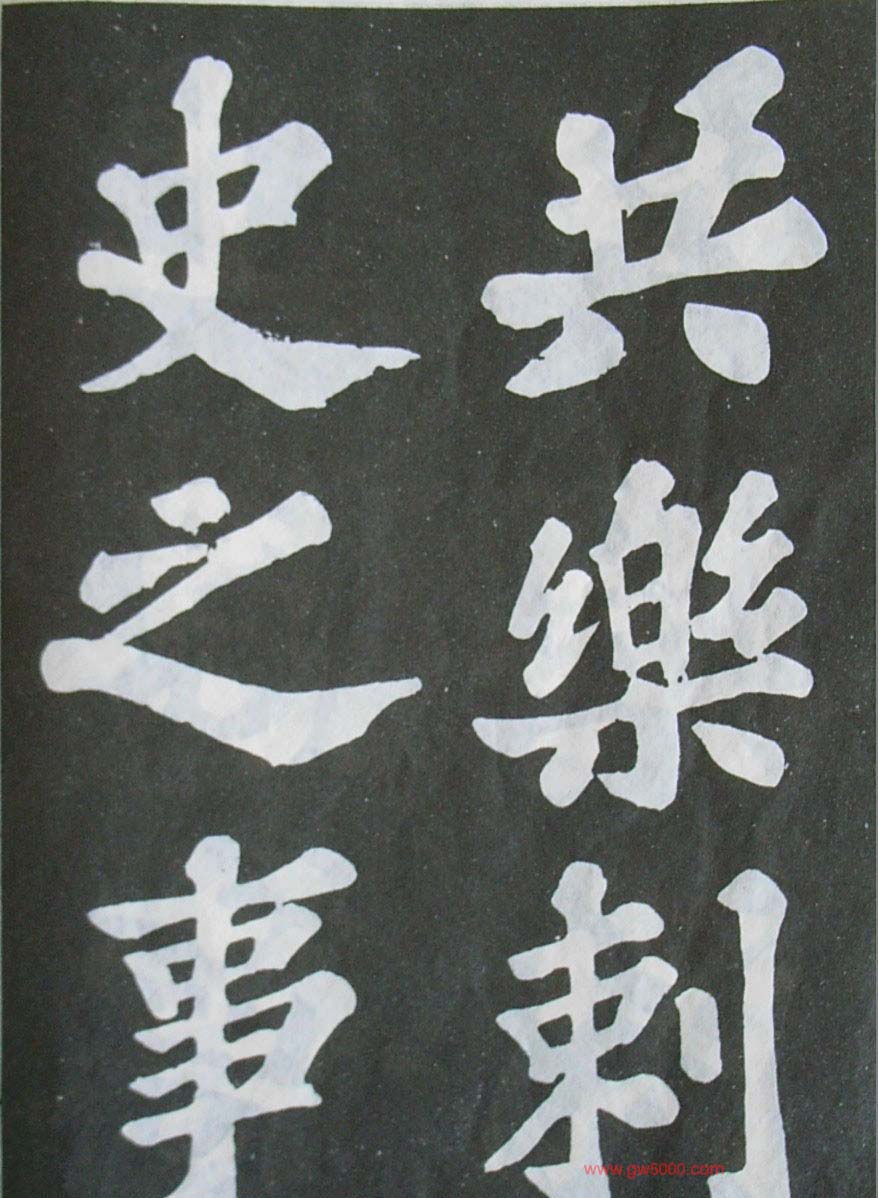 共樂刺
史之事
www.gw5000.com